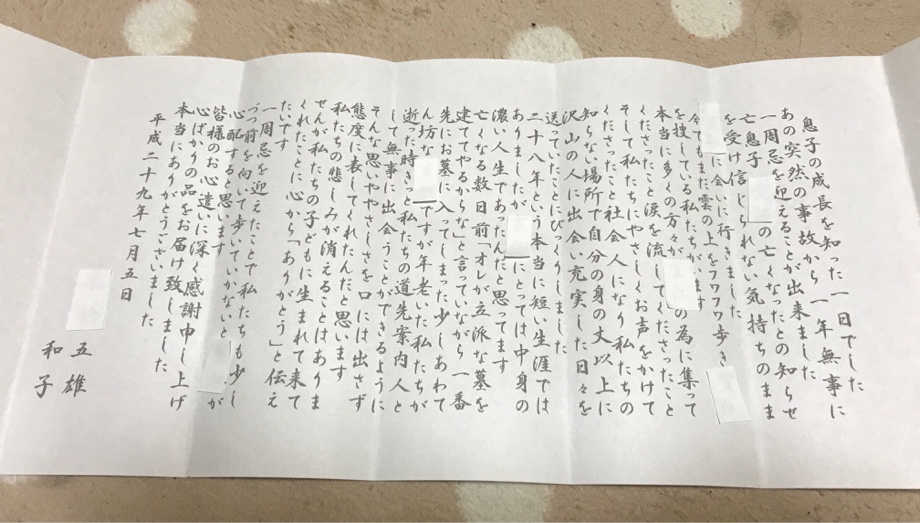 息子の成長を知った一日でした
あの突然の事故から一年無事に
一周忌を迎えることが出来ました
亡息子の亡くなったとの知らせ
を受け信じられない気持ちのまま
に会いに行きました
今でもまだ雲の上をフワフワ歩き
を捜している私たちがいます
本当に多くの方々がの為に集って
くださったこと涙を流してくださったこと
そして私たちにやさしくお声をかけて
くださったこと社会人になり私たちの
知らない場所で自分の身の丈以上に
沢山の人に出会い充実した日々を
送っていたことにびっくりしました
二十八年という本当に短い生涯では
ありましたがにとっては中身の
濃い人生であったんだと思ってます
亡くなる数日前「オレが立派な墓を
建ててやるからな」と言っていながら一番
先にお墓に入ってしまった少しあわて
ん坊なですが年老いた私たちが
逝った時きっと私たちの道先案内人と
して無事に出会うことができるように
そんな思いややさしさを口には出さず
態度に表してくれたんだと思います
私たちの悲しみが消えることはありま
せんが私たちの子どもに生まれて来て
くれたことに心から「ありがとう」と伝え
たいです
一周忌を迎えたことで私たちも少し
づつ前を向いて歩いていかないとが
心配すると思います
皆様のお心遣いに深く感謝申し上げ
心ばかりの品をお届け致します
本当にありがとうございました
平成二十九年七月五日
五雄
和子